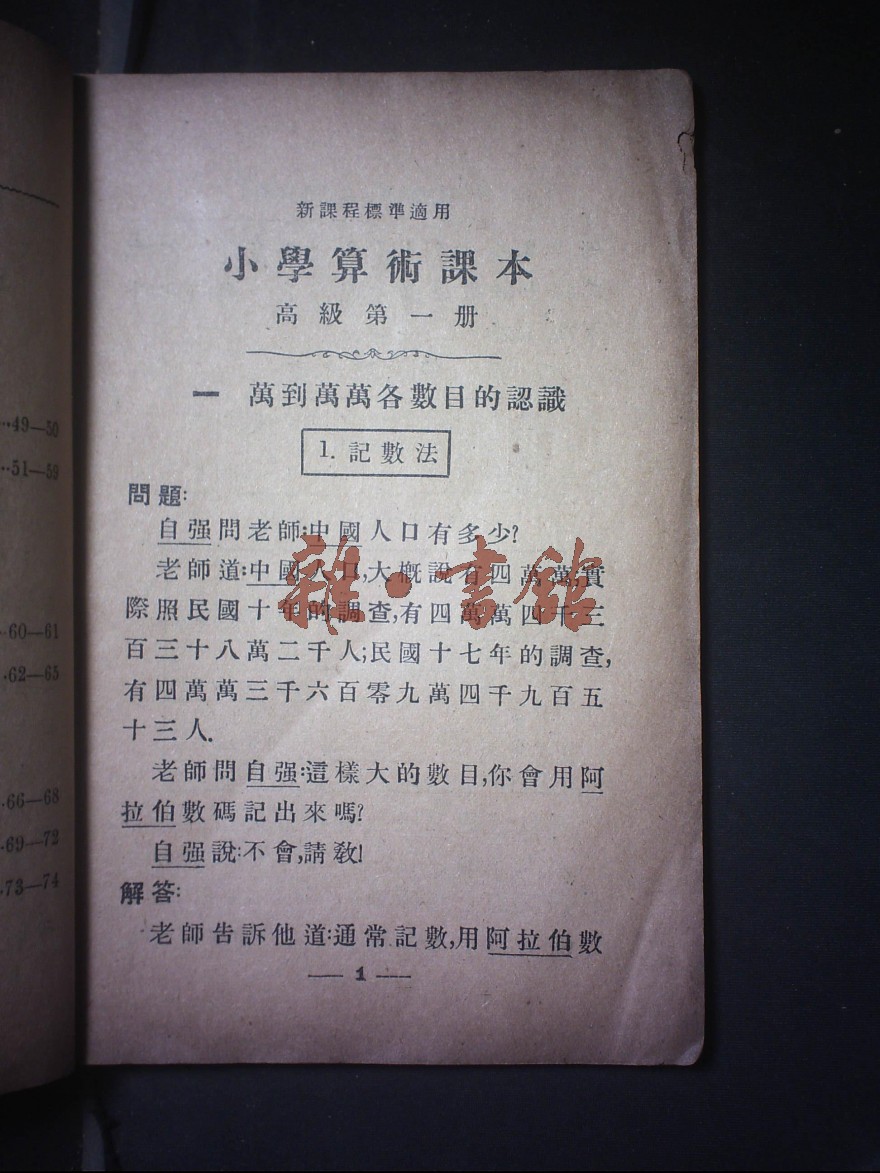 新課程標準適用
小學算術課本
高級第一册
一 萬到萬萬各數目的認識
1. 記數法
問題:
自强問老師:中國人口有多少?
老師道:中國人口,大概說有四萬萬;實
際照民國十年的調查,有四萬萬四千三
百三十八萬二千人;民國十七年的調查,
有四萬萬三千六百零九萬四千九百五
十三人.
老師問自强:這樣大的數目,你會用阿
拉伯數碼記出來嗎?
自强說:不會,請敎!
解答:
老師告訴他道:通常記數,用阿拉伯數
— 1 —
雜·書館
49—50
51—59
60—61
62—65
66—68
69—72
73—74